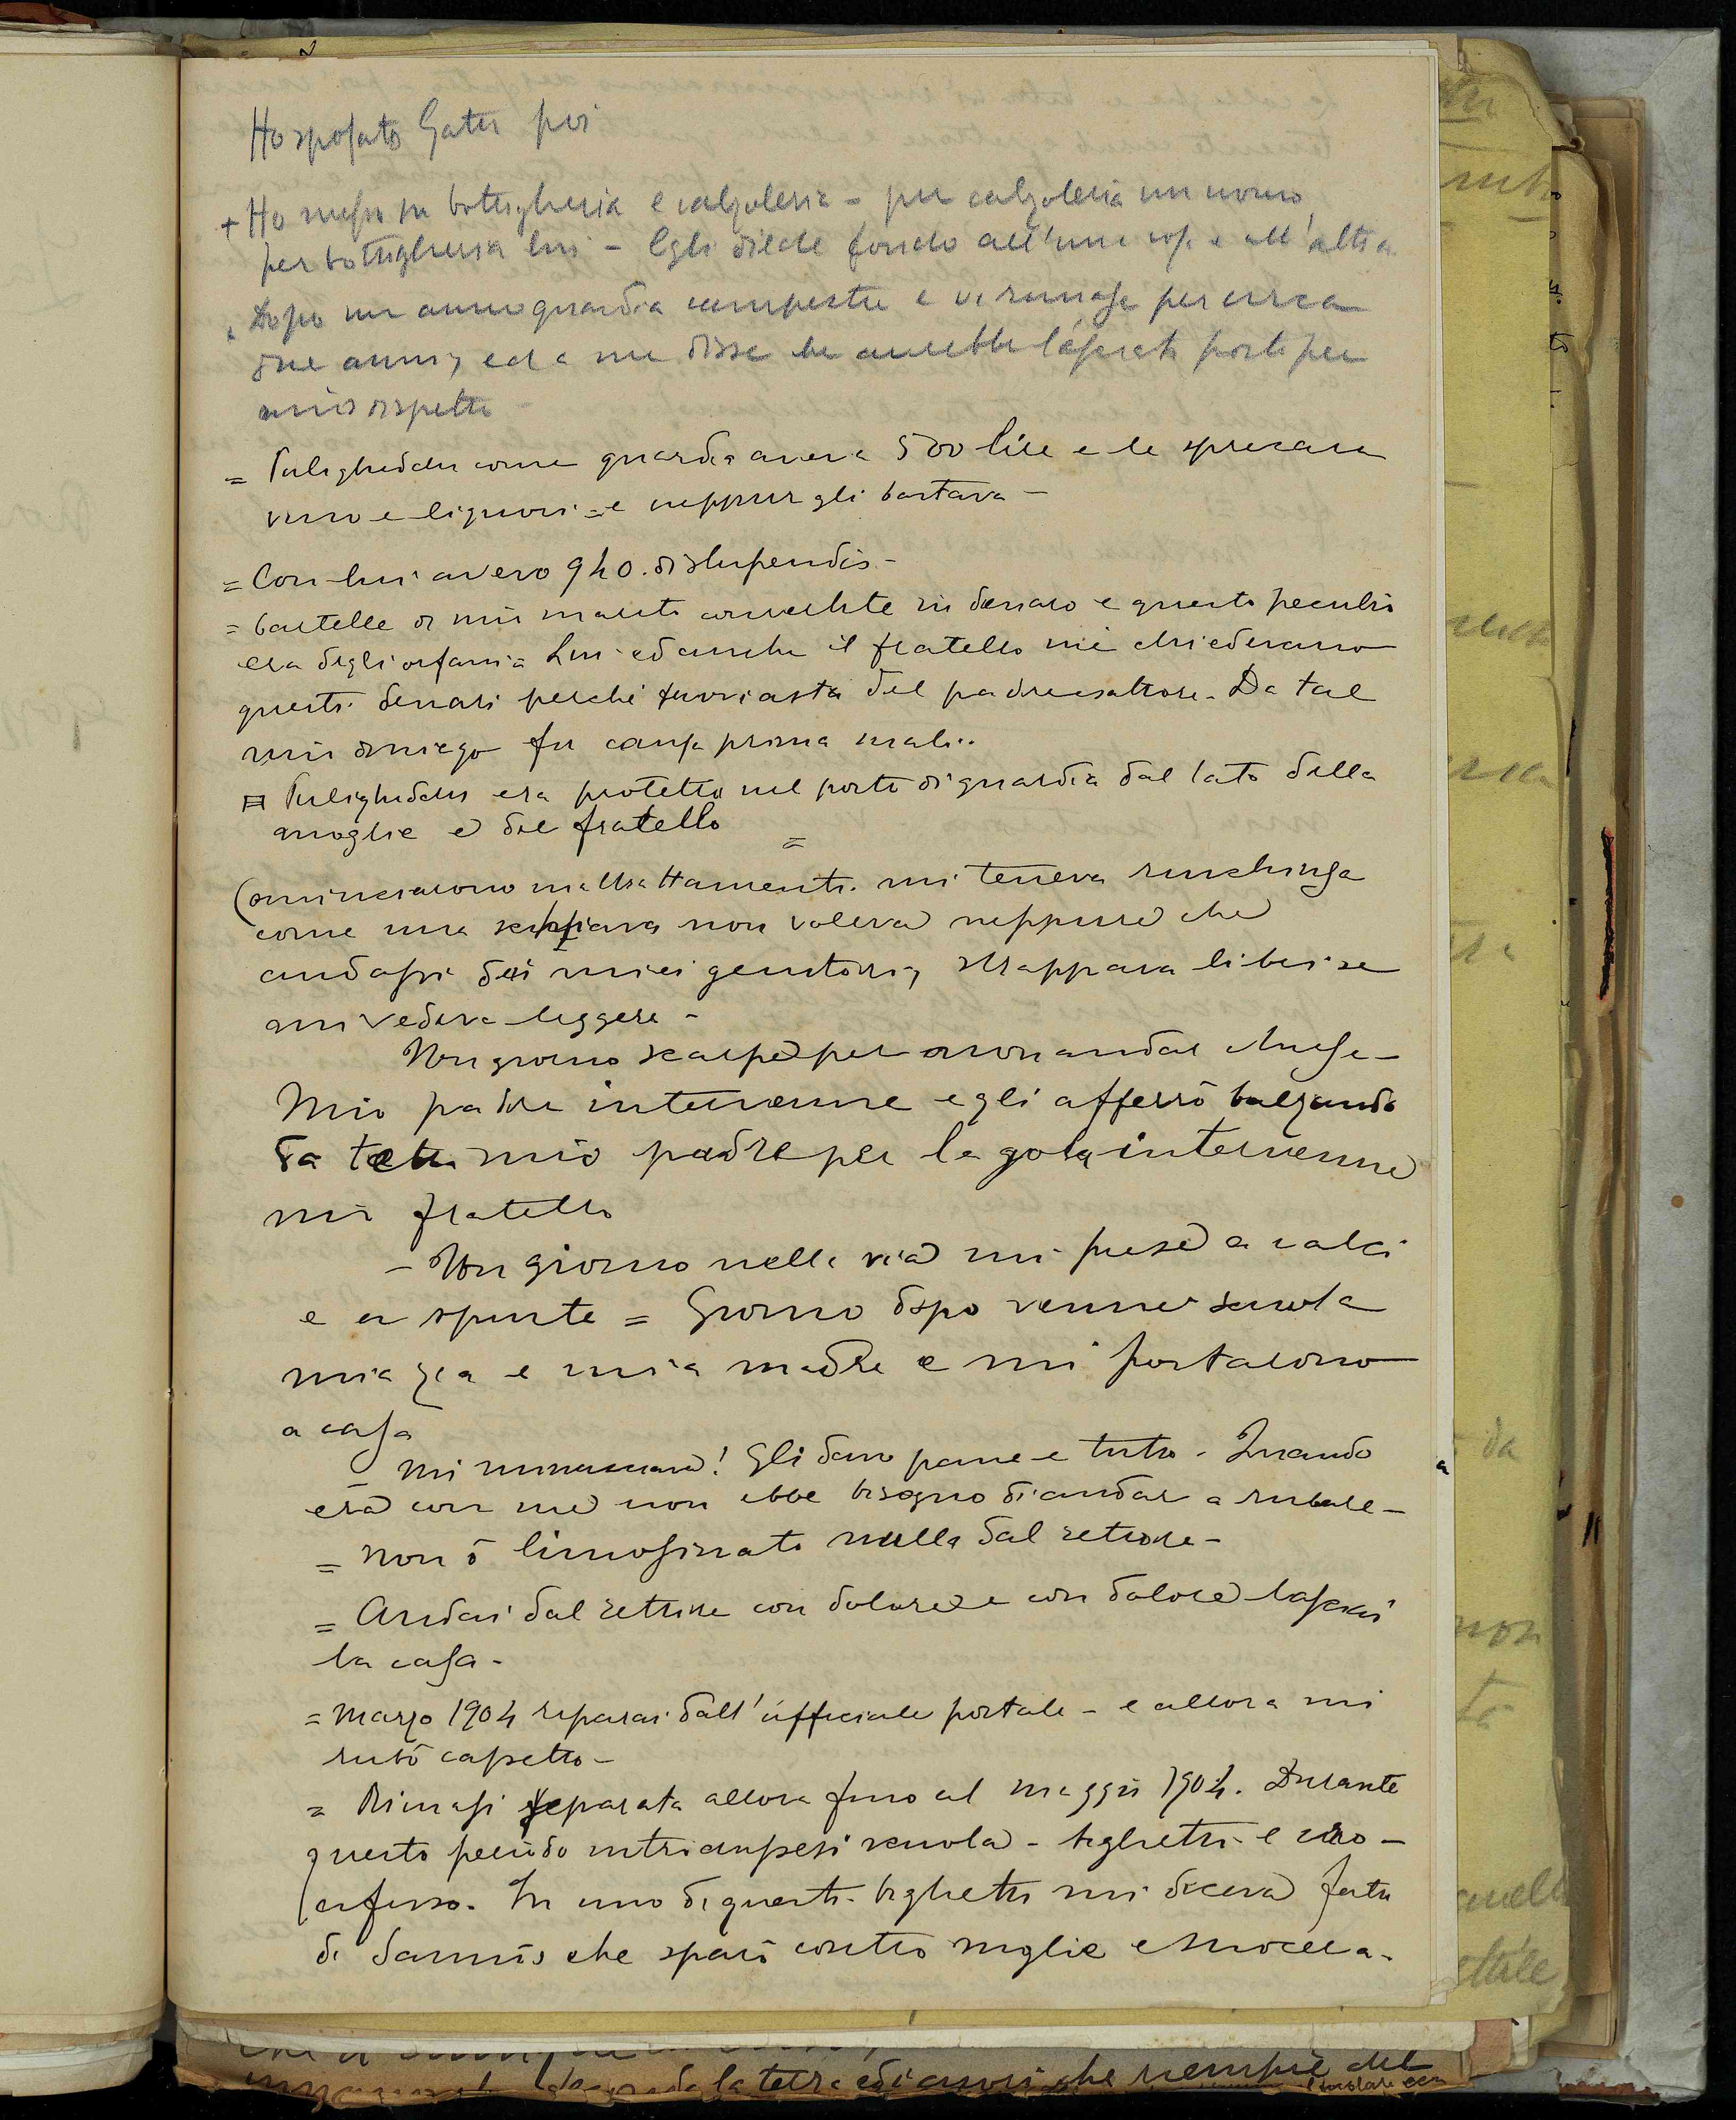 Ho sposato
+ Ho messo su bottiglieria e calzoleria – per calzoleria un uomo,
per bottiglieria lui – Egli diede fondo all'una cosa e all'altra
Dopo un anno guardia campestre e vi rimase per circa
due anni, ed a me disse che avrebbe lasciato posto per
mio dispetto –
= Puligheddu come guardia aveva 500 lire e le sprecava
vino e liquori = e neppur gli bastava –
= Con lui avevo 940. di stipendio –
= Cartelle di mio marito convertite in denaro e questo peculio
era degli orfani = Lui ed anche il fratello mi chiedevano
questi denari perché del padre esattore. Da tal
mio diniego fu causa prima mali..
= Puligheddu era protetto nel posto di guardia dal lato della
moglie e del fratello =
Cominciarono maltrattamenti. mi teneva rinchiusa
come una schiava non voleva neppure che
andassi dai miei genitori, strappava libri se
mi vedeva leggere –
Un giorno scarpe per non andar chiesa –
Mio padre intervenne egli afferrò balzando
da letto mio padre per la gola intervenne
mio fratello
– Un giorno nella via mi prese a calci
e a spinte = Giorno dopo venne scuola
mia zia e mia madre e mi portarono
a casa
Mi minacciava! Gli davo pane e tutto. Quando
era con me non ebbe bisogno di andar a rubare –
= Non ò limosinato nulla dal rettore –
= Andai dal rettore con dolore e con dolore lasciai
la casa –
= Marzo 1904 riparai dall'ufficiale postale – e allora mi
rubò cassetto –
= Rimasi separata allora fino al maggio 1904. Durante
questo periodo scuola – biglietti e
In uno di questi biglietti mi diceva fatto
di Sannio che sparò contro moglie e suocera.